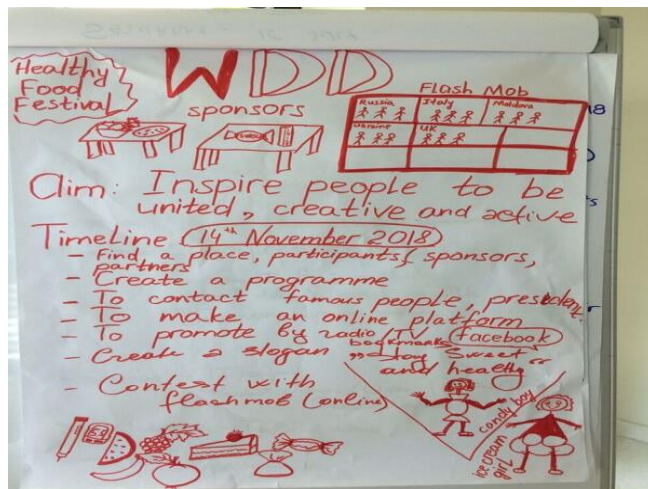 Healthy
Food
Festival
WDD
sponsors
Flash Mob
Russia Italy Moldova
Ukraine UK
Aim: Inspire people to be
united, creative and active
Timeline 14th November 2018
- Find a place, participants, sponsors,
partners
- Create a programme
- To contact famous people, president
- To make an online platform
- To promote by radio, TV, facebook
bookmarks
- Create a slogan „Stay Sweet“
and healthy
- Contest with
flashmob (online)
candy boy
ice cream
girl
18